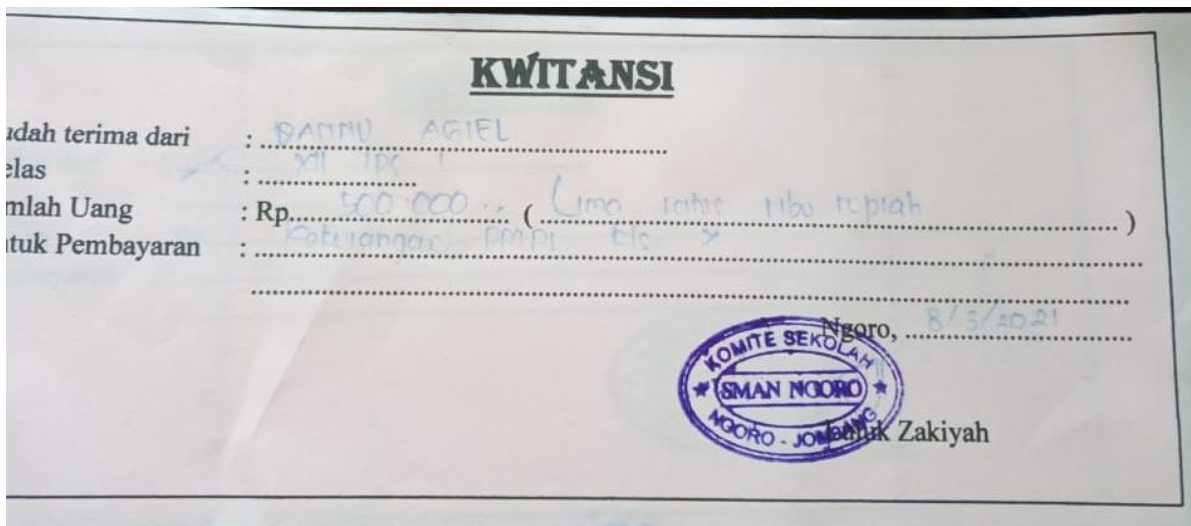 KWITANSI
udah terima dari : DANNU AGIEL
elas : XII IPS 1
mlah Uang : Rp. 500.000 .. (Lima ratus ribu rupiah)
tuk Pembayaran : PMPL Cls X
Ngoro, 8/3/2021
KOMITE SEKOLAH
SMAN NGORO
NGORO - JOMBANG
Zakiyah